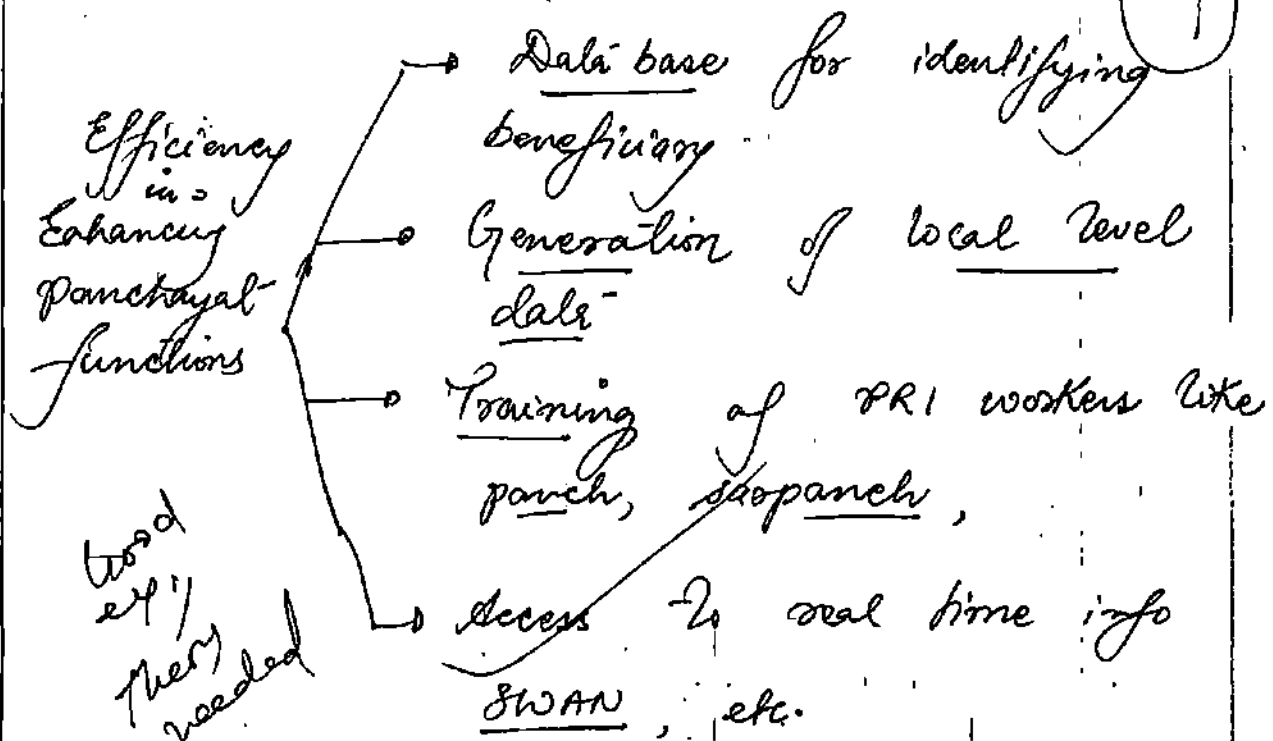 Efficiency
in
Enhancing
panchayat
functions
Data base for identifying
beneficiary
Generation of local level
data
Training of PRI workers like
panch, sarpanch,
Access to real time info
SWAN, etc.
Good
needed